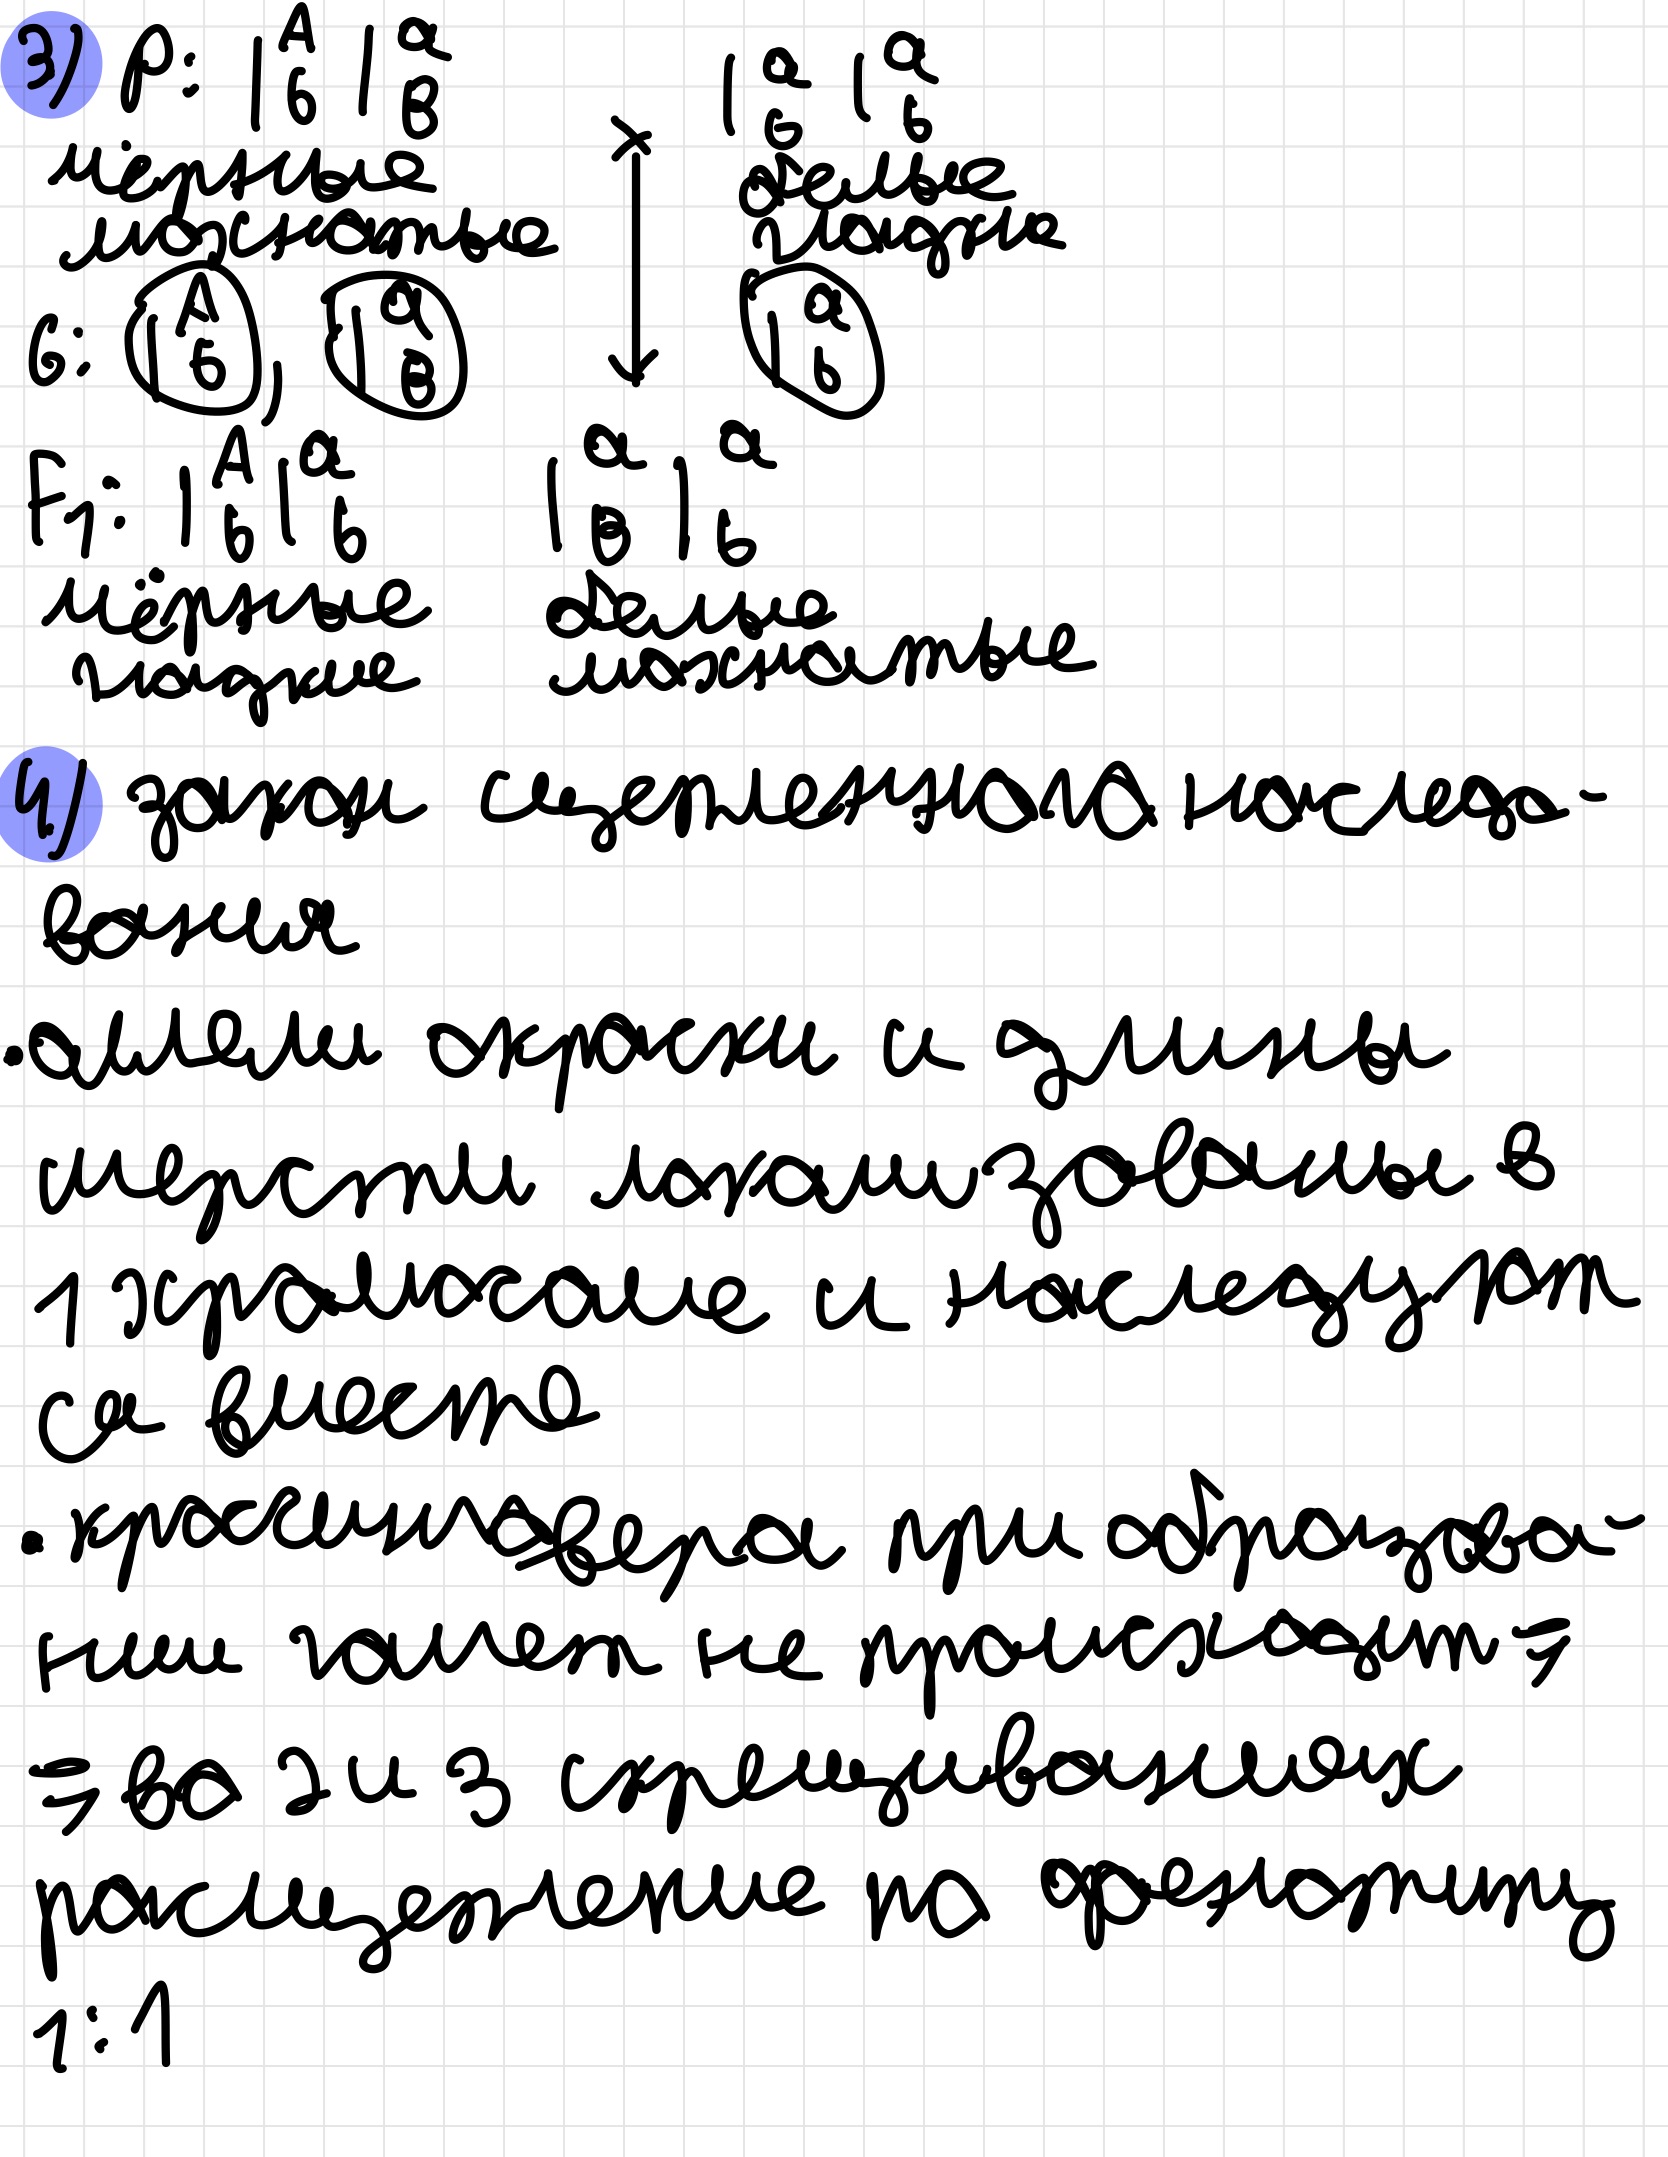 3) P: | A | a | a | a
б B б б
чёрные × белые
мохнатые гладкие
G: | A , | a | a
б B б
F1: | A | a | a | a
б б B б
чёрные белые
гладкие мохнатые
4) закон сцепленного наследо-
вания
• аллели окраски и длины
шерсти локализованы в
1 хромосоме и наследуют
ся вместе
• кроссинговера при образова-
нии гамет не происходит ⇒
⇒ во 2 и 3 скрещиваниях
расщепление по фенотипу
1:1